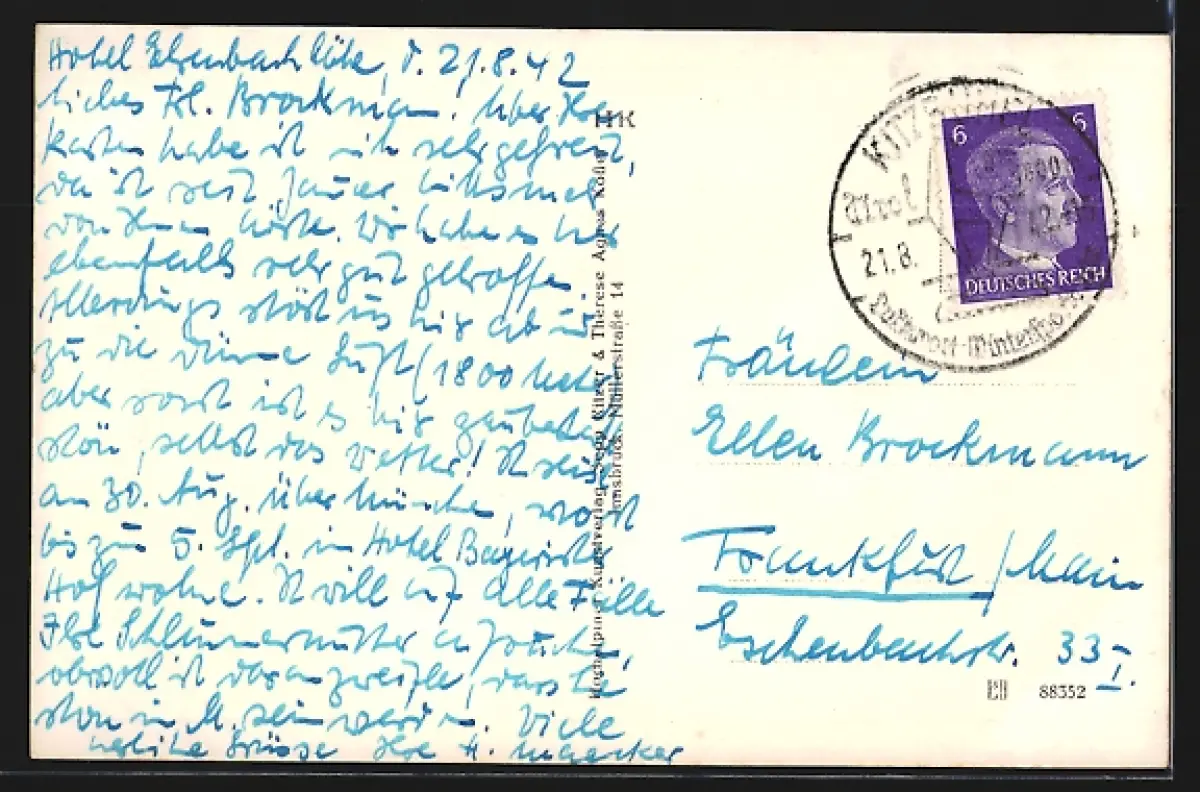 Hotel Ehrenbachhöhe, d. 21.8.42
Liebes Frl. Brockmann! Über Ihre
Karten habe ich mich sehr gefreut,
da ich seit Januar nichts mehr
von Ihnen hörte. Wir haben es hier
ebenfalls sehr gut getroffen.
Allerdings stört uns hier ab und
zu die dünne Luft (1800 Meter)
aber sonst ist es hier zauberhaft
schön, selbst das Wetter! Ich reise
am 30. Aug. über München, wo ich
bis zum 5. Sept. im Hotel Bayrischer
Hof wohne. Ich will auf alle Fälle
Ihre Schlummermutter aufsuchen,
obwohl ich daran zweifle, dass Sie
schon in M. sein werden. Viele
herzliche Grüsse Ihre H.
HK
Hochalpiner Kunstverlag Sepp Kitzer & Therese Agnes Kofler
Innsbruck, Müllerstraße 14
KITZBÜHEL
Tirol
21.8.
Luftkurort-Wintersport
6 6
DEUTSCHES REICH
Fräulein
Ellen Brockmann
Frankfurt/Main
Eschenbachstr. 33 I.
88352